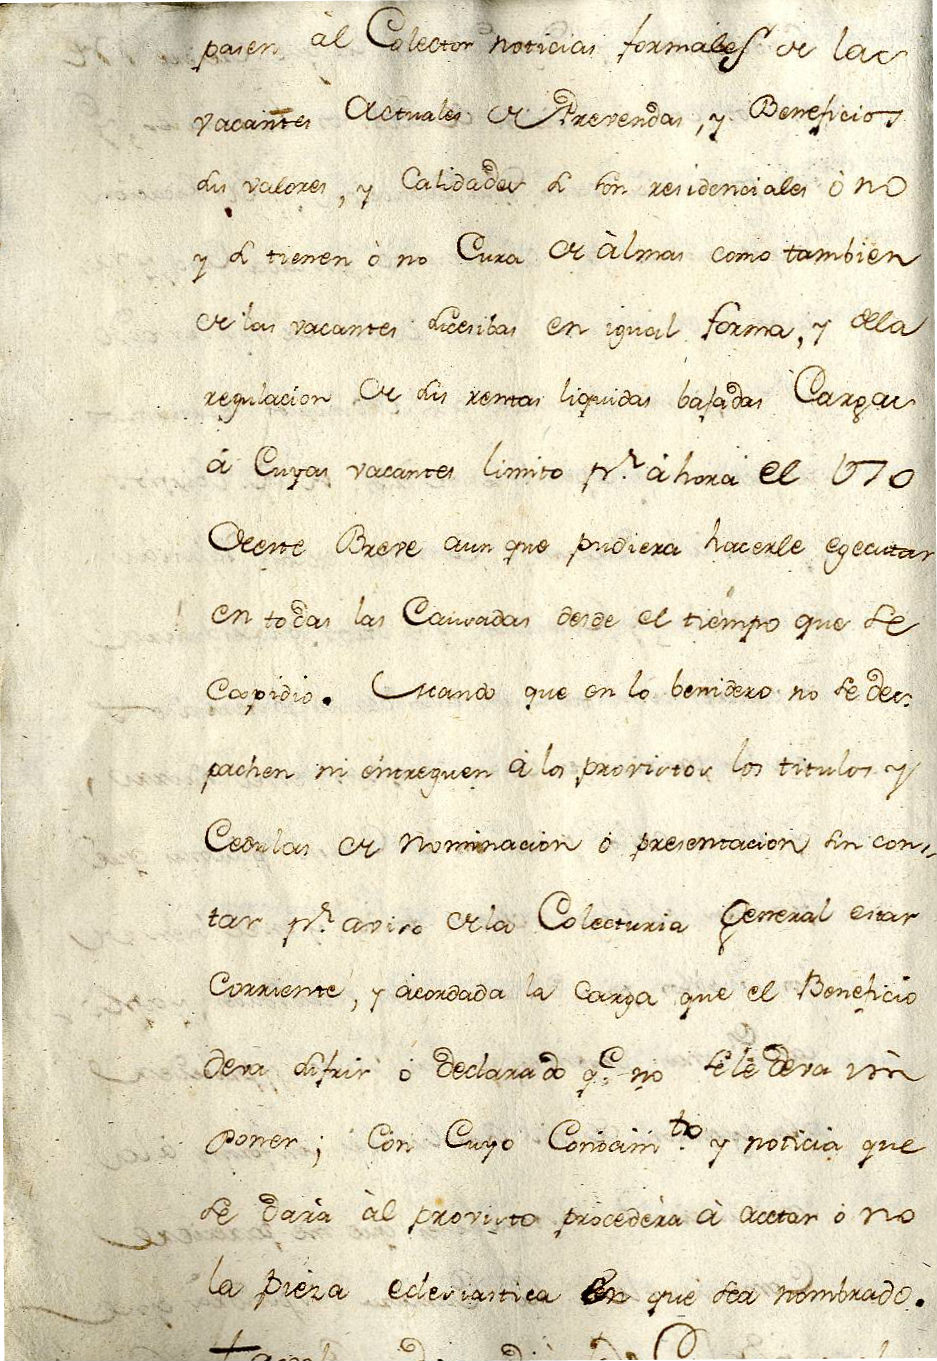 pasen àl Colector noticias formales de las
vacantes Actuales de Prevendas, y Beneficios
sus valores, y Calidades si son residenciales ò no
y si tienen ò no Cura de àlmas como tambien
de las vacantes sucesibas en igual forma, y dela
regulacion de sus rentas liquidas bajadas Cargas
à Cuyas vacantes limito pr. àhora el uso
deeste Breve aun que pudiera hacerle egecutar
en todas las Causadas desde el tiempo que se
expidio. Mando que en lo benidero no se des-
pachen ni entreguen à los provistos los titulos y
Cedulas de nominacion ò presentacion sin cons-
tar pr. aviso dela Colecturia General estar
Corriente, y àcordada la Carga que el Beneficio
deva sufrir ò declarado qe. no sele deva im
poner; Con Cuyo Conocimto. y noticia que
se darà àl provisto procederà à acetar ò no
la pieza eclesiastica en que sea nombrado.